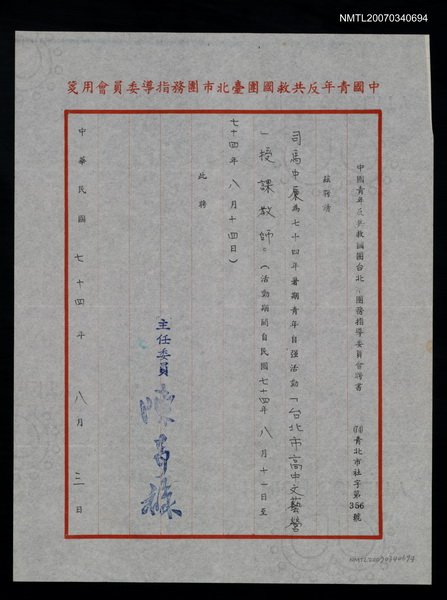 NMTL20070340694
中國青年反共救國團臺北市團務指導委員會用箋
中國青年反共救國團台北市團務指導委員會聘書
青北市社字第356號
茲聘請
司馬中原為七十四年暑期青年自强活動「台北市高中文藝營
」授課教師。（活動期間自民國七十四年八月十一日至
七十四年八月十四日）
此聘
主任委員
中華民國七十四年八月三日
NMTL20070340694